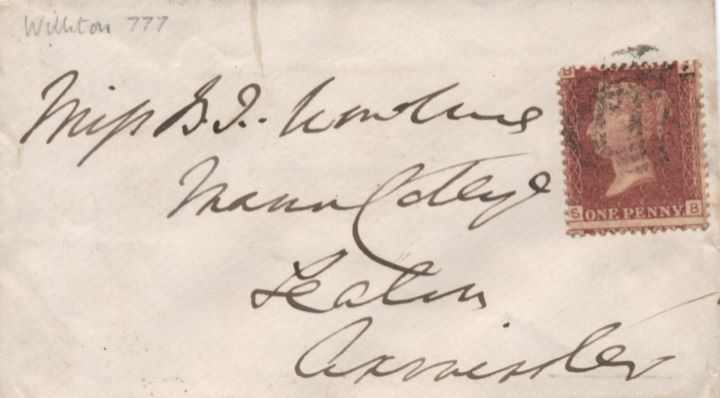 Williton 777
Miss B. J.
Manor Cottage
Seaton
Axminster
B
S ONE PENNY B